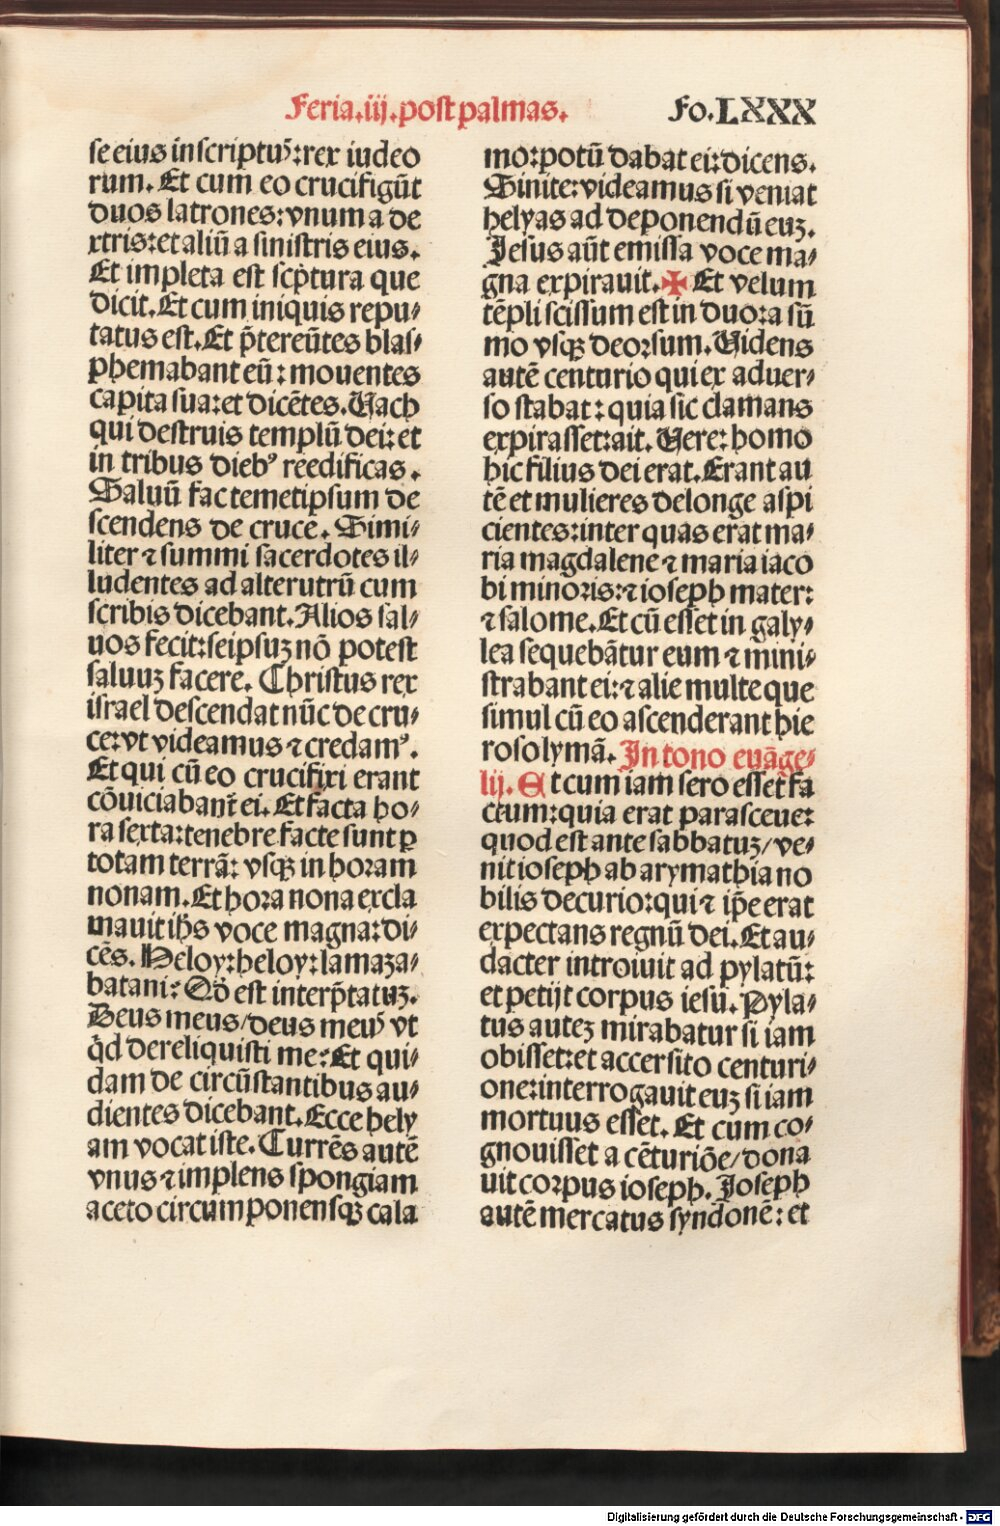 Feria.iij.post palmas.
Fo.LXXX
se eius inscriptus:rex iudeo
rum. Et cum eo crucifigūt
duos latrones:vnum a de
xtris:et aliū a sinistris eius.
Et impleta est scp̄tura que
dicit. Et cum iniquis repu⸗
tatus est. Et p̄tereūtes blas⸗
phemabant eū: mouentes
capita sua:et dicētes. Vach
qui destruis templū dei: et
in tribus diebꝰ reedificas.
Saluū fac temetipsum de
scendens de cruce. Simi⸗
liter ⁊ summi sacerdotes il⸗
ludentes ad alterutrū cum
scribis dicebant. Alios sal⸗
uos fecit:seipsuꝫ nō potest
saluuꝫ facere. Christus rex
israel descendat nūc de cru⸗
ce:vt videamus ⁊ credamꝰ.
Et qui cū eo crucifixi erant
cōuiciabant̄ ei. Et facta ho⸗
ra sexta:tenebre facte sunt ꝑ
totam terrā: vsqꝫ in horam
nonam. Et hora nona excla
mauit ihs̄ voce magna:di⸗
cēs. Heloy:heloy:lamaza⸗
batani: Qd̄ est interp̄tatuꝫ.
Deus meus/deus meus vt
qd̄ dereliquisti me: Et qui⸗
dam de circūstantibus au⸗
dientes dicebant. Ecce hely
am vocat iste. Currēs autē
vnus ⁊ implens spongiam
aceto circumponensqꝫ cala
mo:potū dabat ei:dicens.
Sinite:videamus si veniat
helyas ad deponendū euꝫ.
Jesus aūt emissa voce ma⸗
gna expirauit. ✠ Et velum
tēpli scissum est in duo:a sū
mo vsqꝫ deorsum. Videns
autē centurio qui ex aduer⸗
so stabat: quia sic clamans
expirasset:ait. Vere: homo
hic filius dei erat. Erant au
tē et mulieres de longe aspi
cientes:inter quas erat ma⸗
ria magdalene ⁊ maria iaco
bi minoris:⁊ ioseph mater:
⁊ salome. Et cū esset in galy⸗
lea sequebātur eum ⁊ mini⸗
strabant ei:⁊ alie multe que
simul cū eo ascenderant hie
rosolymā. In tono euāge⸗
lij. Et cum iam sero esset fa
ctum:quia erat parasceue:
quod est ante sabbatuꝫ/ve⸗
nit ioseph ab arymathia no
bilis decurio:qui ⁊ ip̄e erat
expectans regnū dei. Et au⸗
dacter introiuit ad pylatū:
et petijt corpus iesu. Pyla⸗
tus auteꝫ mirabatur si iam
obisset:et accersito centuri⸗
one:interrogauit euꝫ si iam
mortuus esset. Et cum co⸗
gnouisset a cēturiōe/dona
uit corpus ioseph. Joseph
autē mercatus syndonē: et
Digitalisierung gefördert durch die Deutsche Forschungsgemeinschaft - DFG